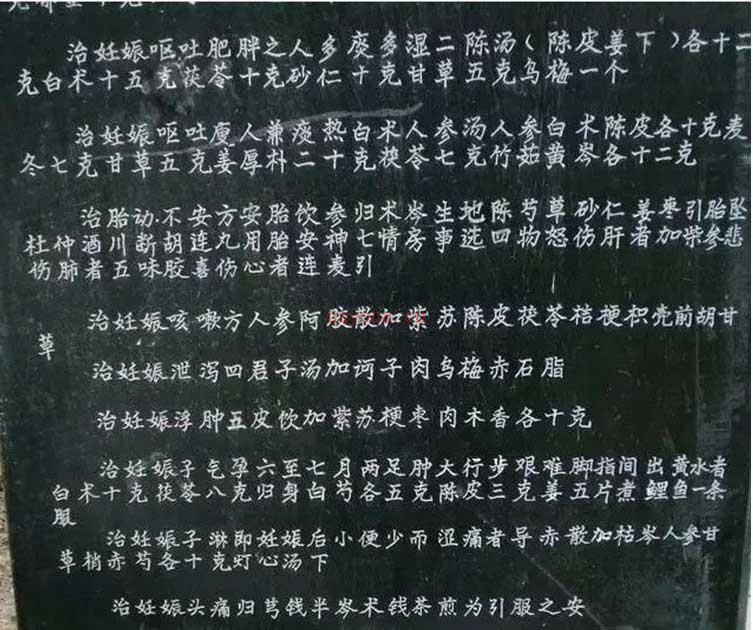 治妊娠呕吐肥胖之人多痰多湿二陈汤(陈皮姜下)各十二
克白术十五克茯苓十克砂仁十克甘草五克乌梅一个
治妊娠呕吐瘦人兼痰热白术人参汤人参白术陈皮各十克麦
冬七克甘草五克姜厚朴二十克茯苓七克竹茹黄岑各十二克
治胎动不安方安胎饮参归术岑生地陈芍草砂仁姜枣引胎坠
杜仲酒川断胡连九用胎安神七情房事选四物怒伤肝者加柴参悲
伤肺者五味胶喜伤心者连麦引
治妊娠咳嗽方人参阿胶散加紫苏陈皮茯苓桔梗枳壳前胡甘
草
治妊娠泄泻四君子汤加诃子肉乌梅赤石脂
治妊娠浮肿五皮饮加紫苏梗枣肉木香各十克
治妊娠子气孕六至七月两足肿大行步艰难脚指间出黄水者
白术十克茯苓八克归身白芍各五克陈皮三克姜五片煮鲤鱼一条
服
治妊娠子淋即妊娠后小便少而涩痛者导赤散加枯岑人参甘
草梢赤芍各十克灯心汤下
治妊娠头痛归芎钱半岑术钱茶煎为引服之安